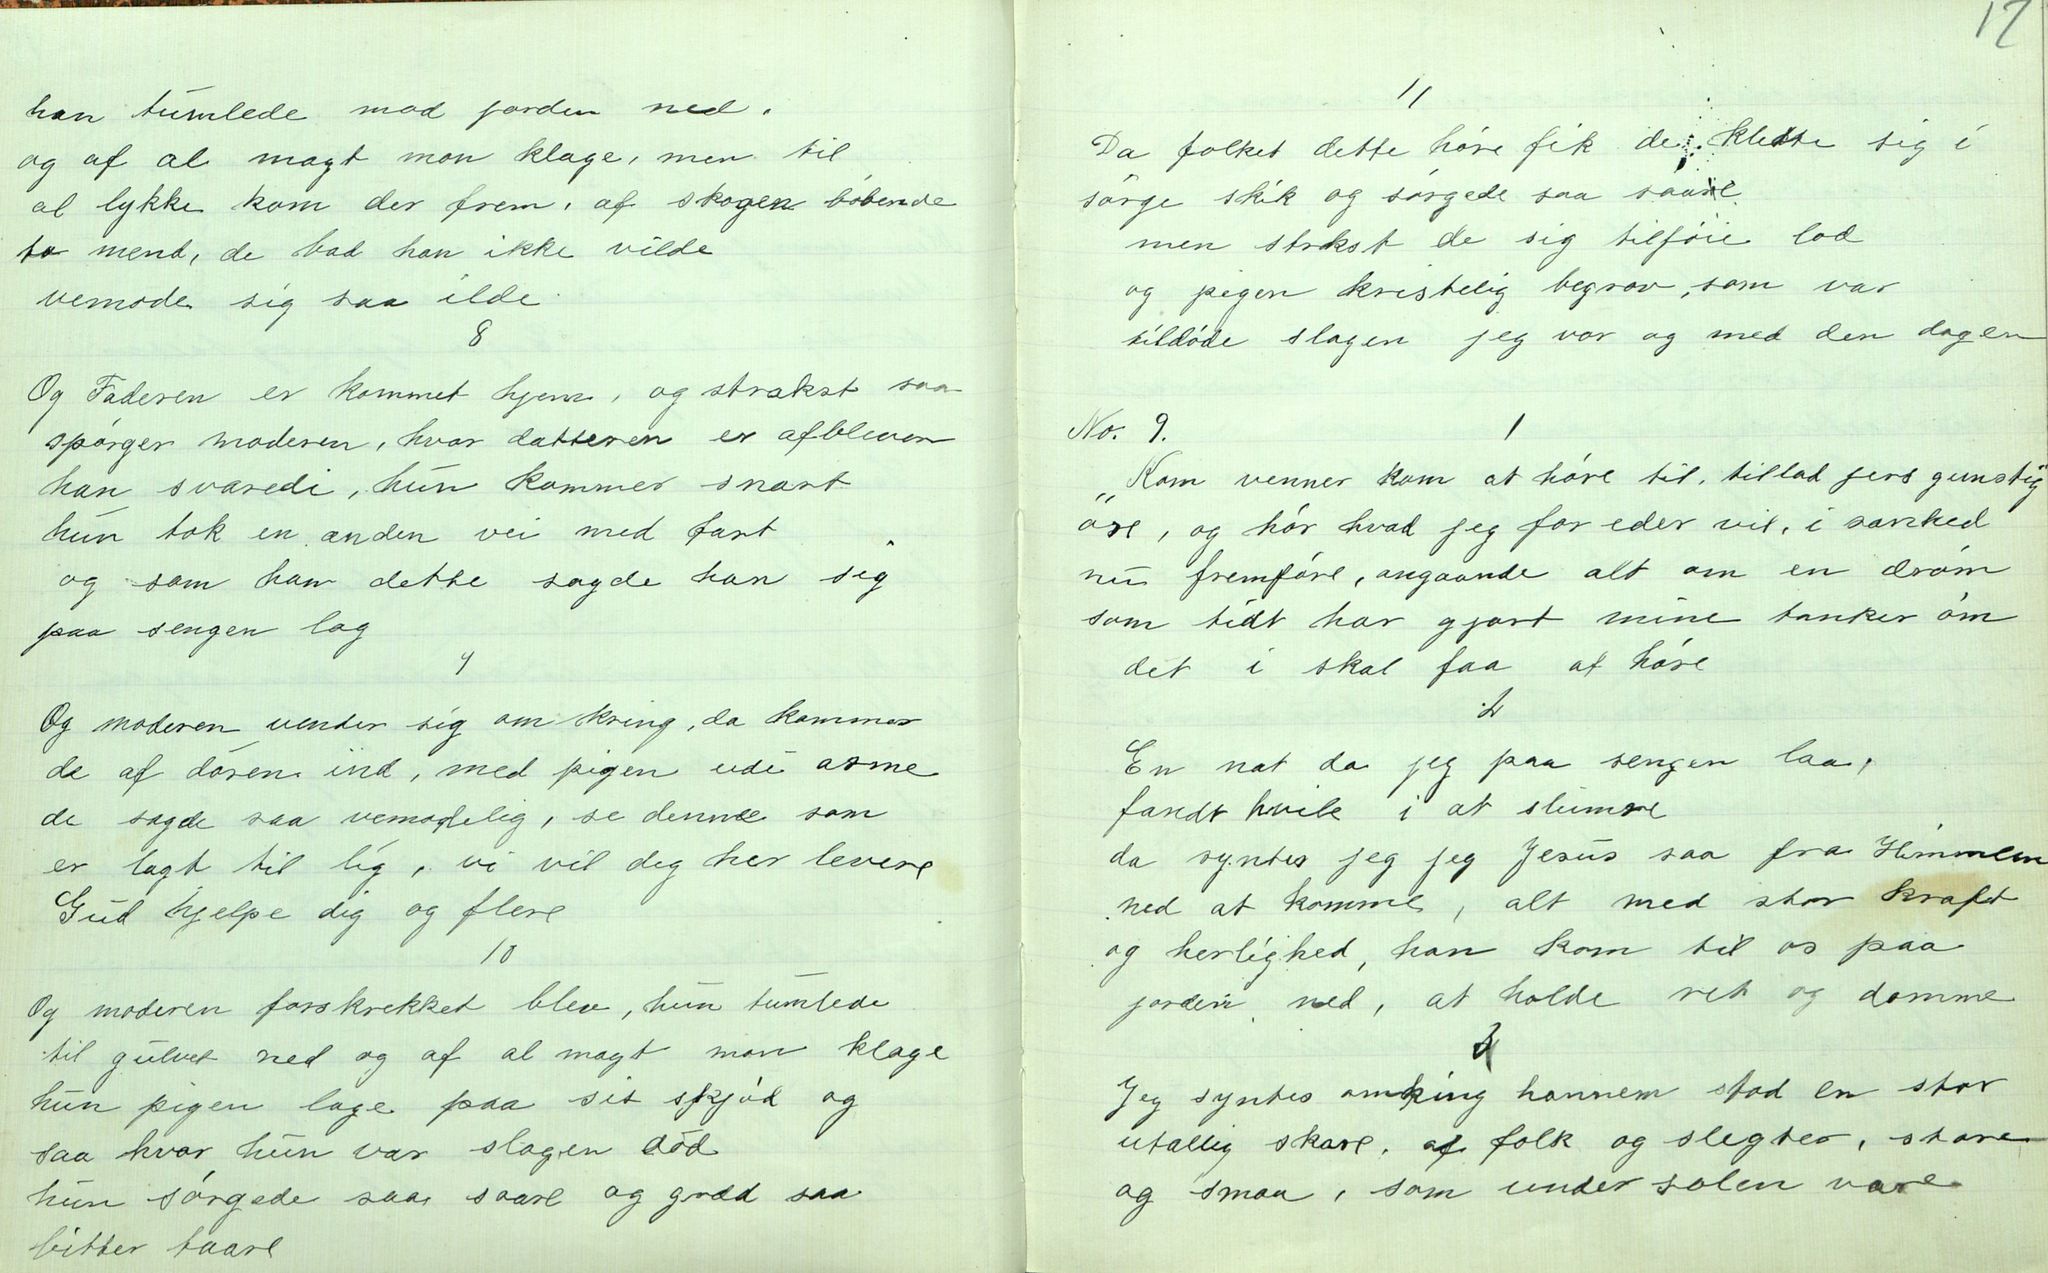 han tumlede mod jorden ned.
og af al magt mon klage, men til
al lykke kom der frem, af skogen bobende
to mend, de bad han ikke vilde
vemode sig saa ilde
8
Og Faderen er kommet hjem, og strakst saa
spörger moderen, hvor datteren er afbleven
han svaredi, hun kommer snart
hun tok en anden vei med fart
og som han dette sagde han sig
paa sengen lag
9
Og moderen vender sig om kring, da kommer
de af dören ind, med pigen udi arme
de sagde saa vemodelig, se denne som
er lagt til lig, vi vil deg her levere
Gud hjelpe dig og flere
10
Og moderen forskrekket blev, hun tumlede
til gulvet ned og af al magt mon klage
hun pigen lage paa sit skjöd og
saa hvor hun var slagen död
hun sörgede saa saare og græd saa
bitter taare
17
11
Da folket dette höre fik de kledte sig i
sörge skik og sörgede saa saare
men strakst de sig tilföie lod
og pigen kristelig begrov, som var
tildöde slagen jeg var og med den dagen
No. 9.
1
„Kom venner kom at höre til, tillad jers gunstig"
öre, og hör hvad jeg for eder vil, i sanhed
nu fremföre, angaande alt om en dröm
som tidt har gjort mine tanker öm
det i skal faa at höre
2
En nat da jeg paa sengen laa,
fandt hvile i at slumre
da syntes jeg jeg Jesus saa fra Himmlen
ned at komme, alt med stor kraft
og herlighed, han kom til os paa
jorden ned, at holde ret og domme
3
Jeg syntes omking hannem stod en stor
utallig skare, af folk og slegter, store
og smaa, som under solen vare